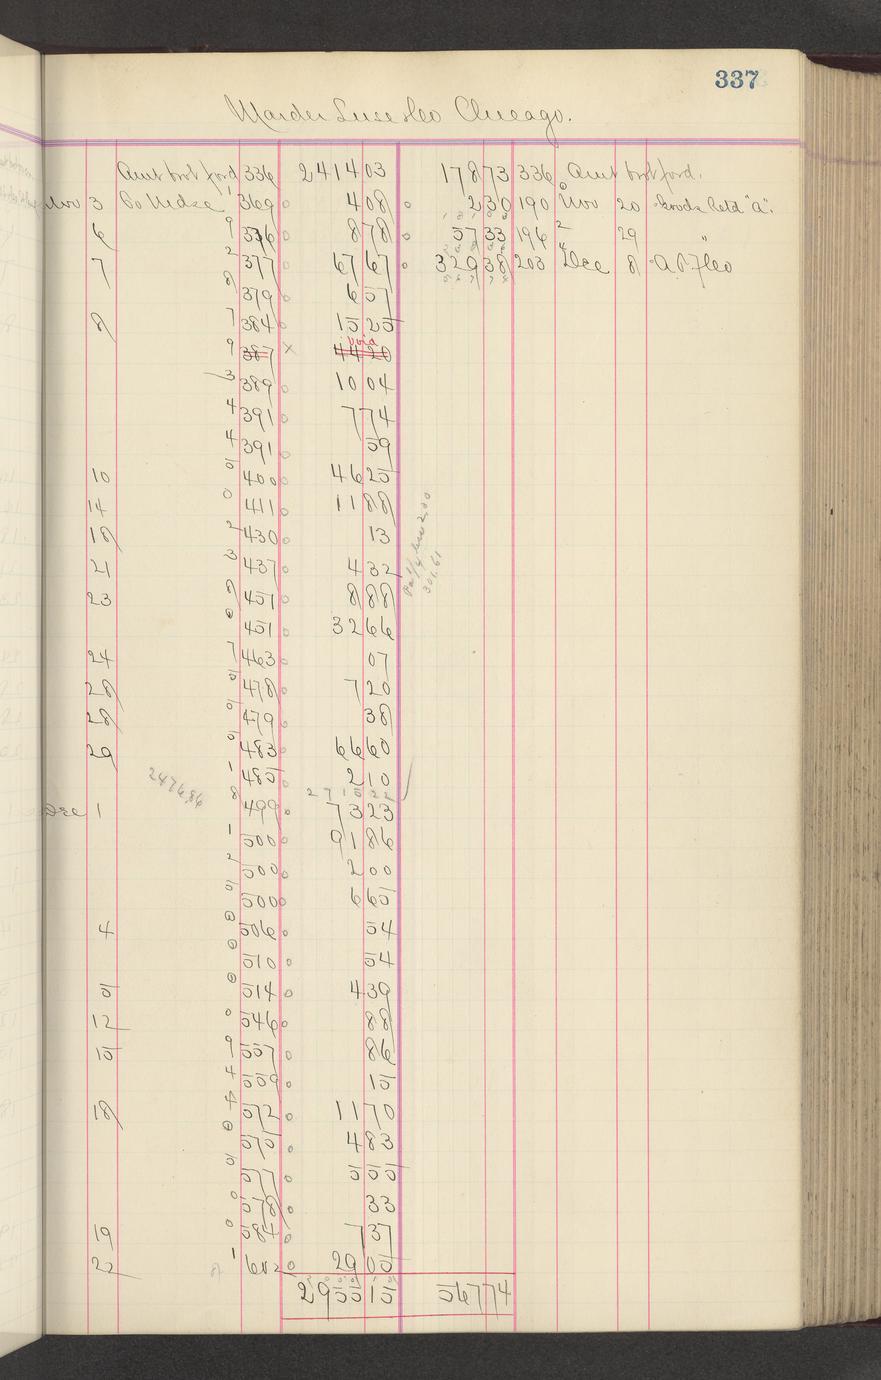 337
Marder Luse & Co Chicago.
Amt brot ford 336 2414 03 178 73 336 Amt brot ford.
Nov 3 By Mdse 1 369 4 08 2 30 190 Nov 20 Goods Retd "A".
6 9 336 8 78 57 33 196 2 29 "
7 2 377 67 67 329 38 203 4 Dec 8 A P & Co
8 379 6 57
8 7 384 15 25
void
9 387 x 44 20
3 389 10 04
4 391 7 74
4 391 59
10 5 400 46 25
14 0 411 11 88
18 2 430 13
21 3 437 4 32
23 8 451 8 88
0 451 32 66
24 7 463 07
28 5 478 7 20
28 5 479 38
29 5 483 66 60
1 485 2 10
2715 22
2476.86
Dec 1 8 499 73 23
1 500 91 86
2 500 2 00
5 500 6 65
4 0 506 54
0 510 54
5 0 514 4 39
12 0 546 88
15 9 557 86
4 559 15
18 4 572 11 70
0 575 4 83
5 577 5 55
0 578 33
19 0 584 7 37
22 1 602 29 05
2955 15 567 74
301.61